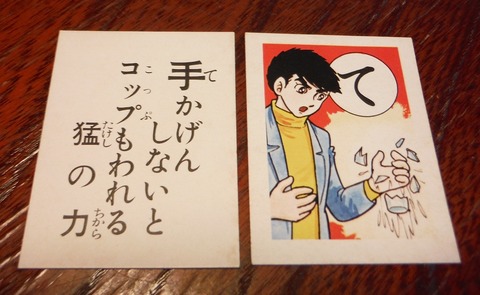 手かげん
しないと
コップもわれる
猛の力
て
こっぷ
たけし
ちから
て